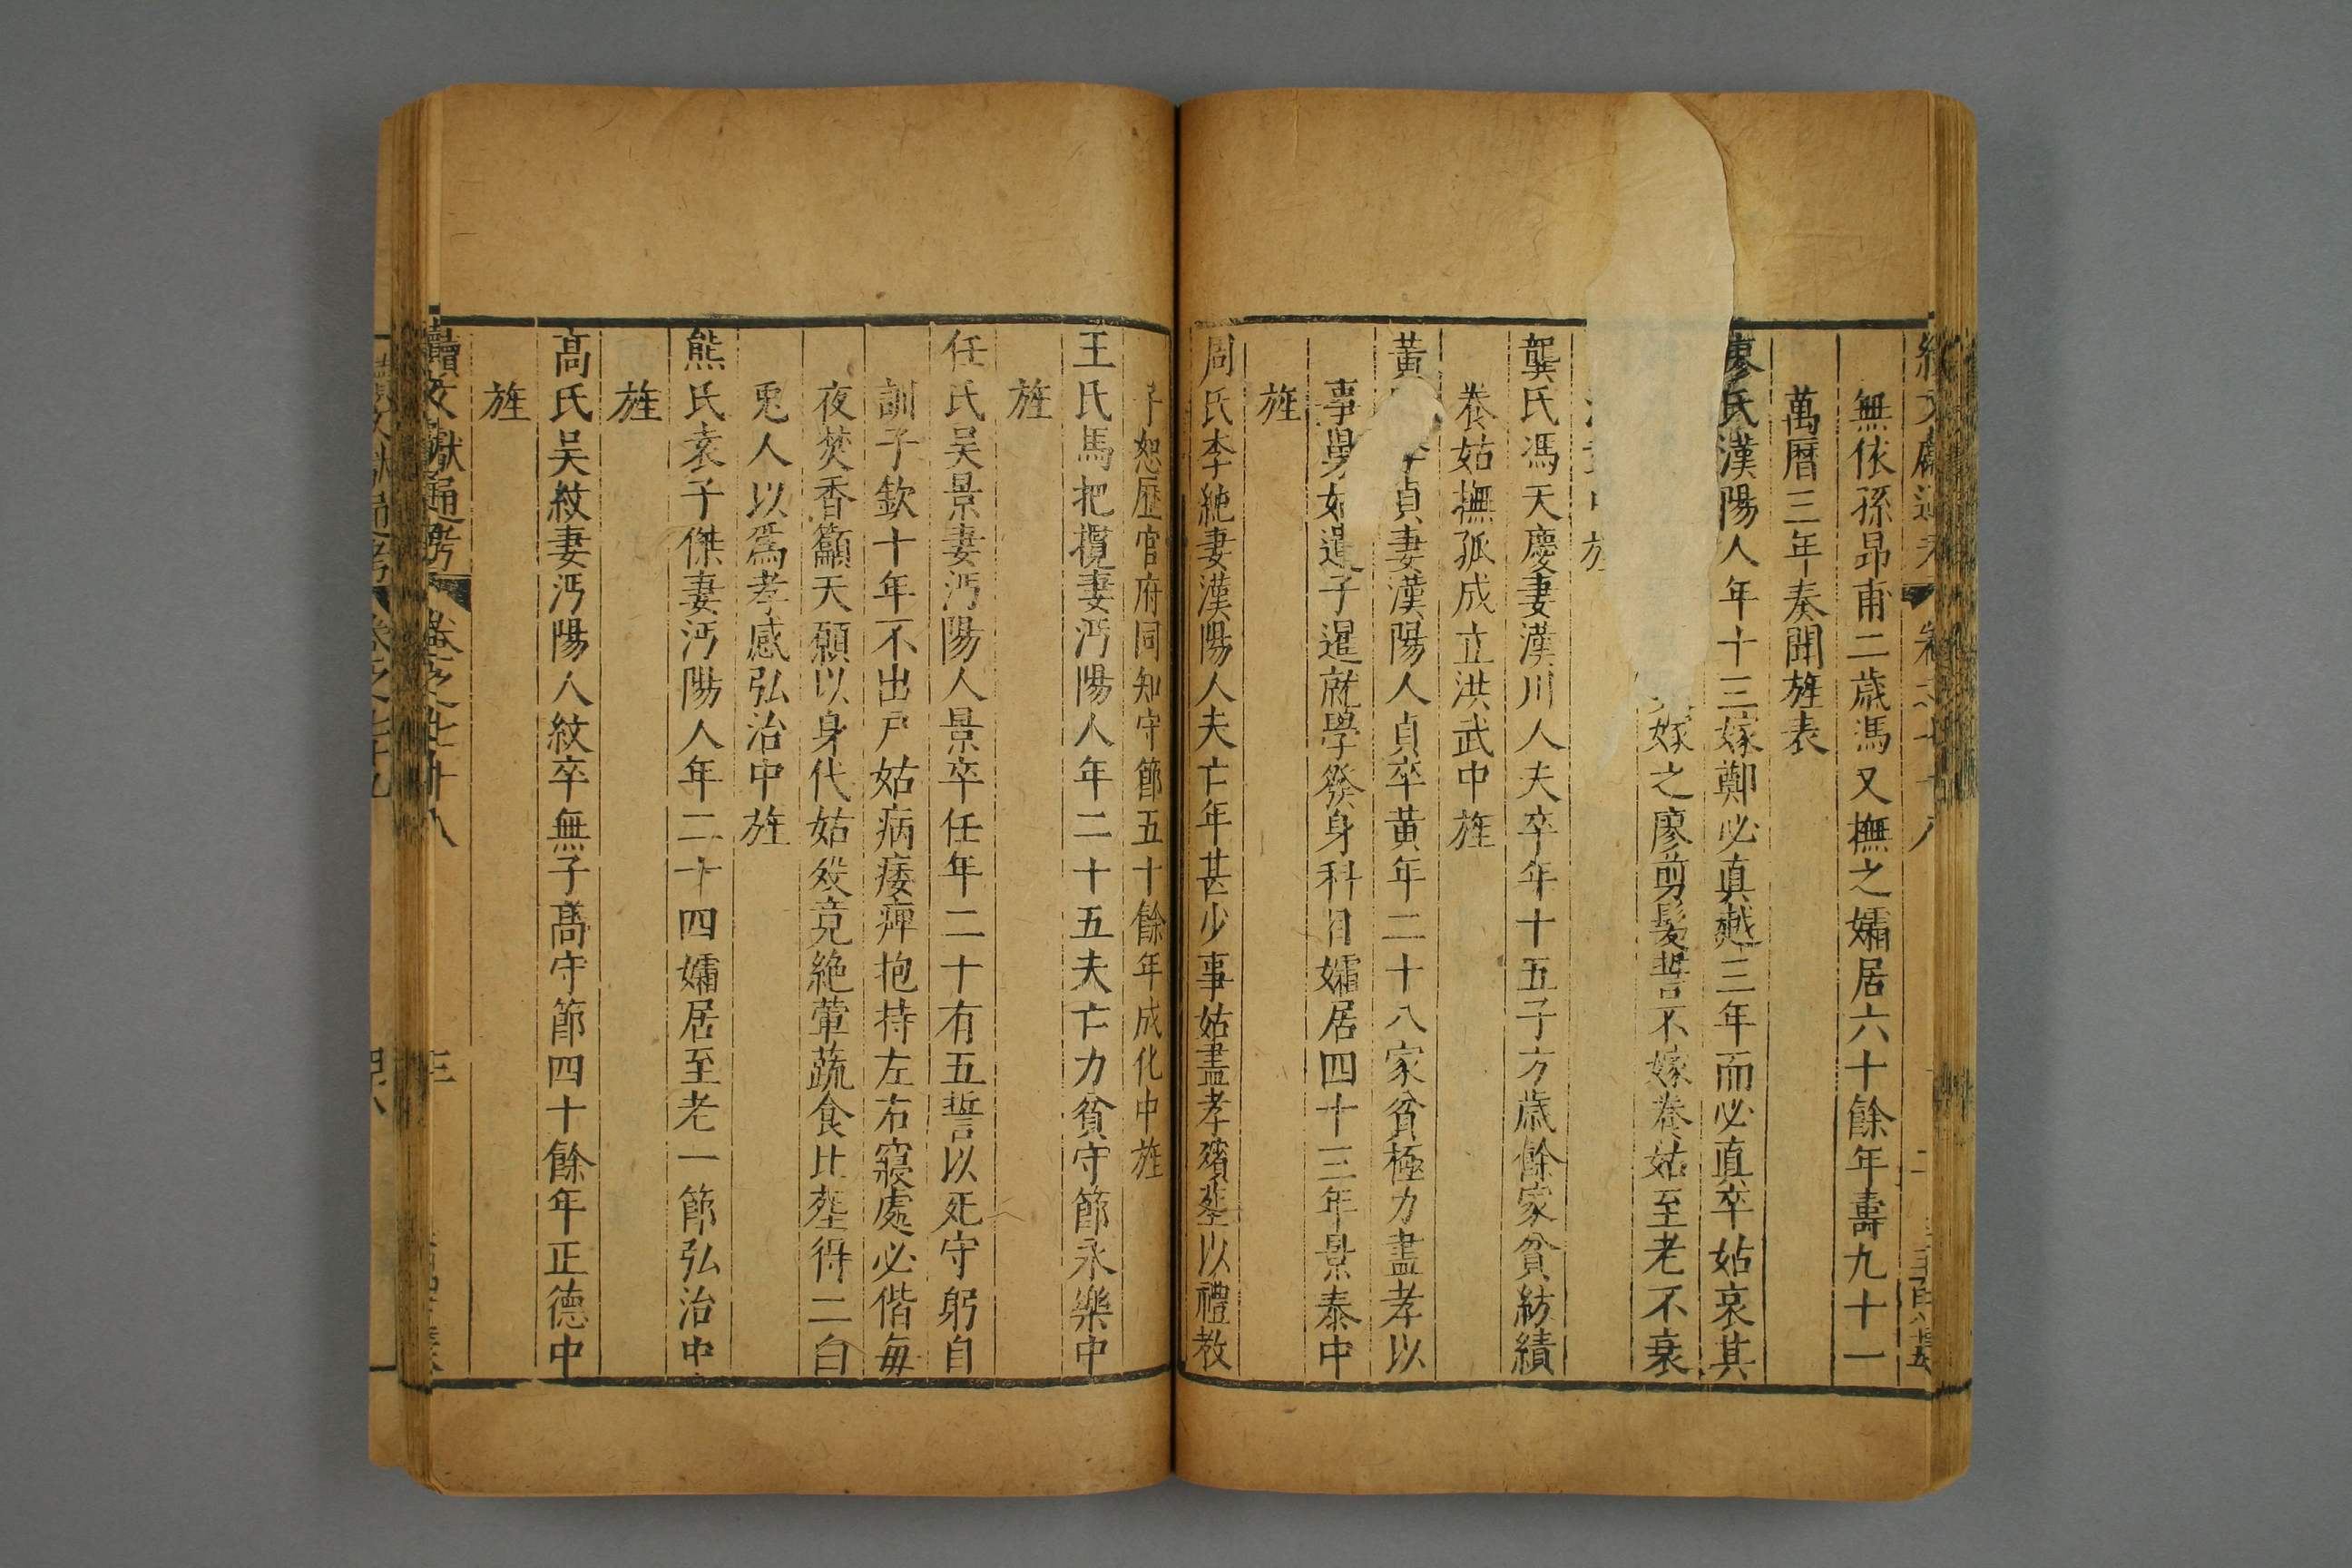 無依孫昻甫二歳馮又撫之孀居六十餘年壽九十一
萬曆三年奏聞旌表
廖氏漢陽人年十三嫁鄭必真越三年而必真卒姑哀其
嫁之廖剪髮誓不嫁養姑至老不衰
旌
龔氏馮天慶妻漢川人夫卒年十五子方歳餘家貧紡績
養姑撫孤成立洪武中旌
黃貞妻漢陽人貞卒黃年二十八家貧極力盡孝以
事舅姑遺子暹就學發身科目孀居四十三年景泰中
旌
周氏李純妻漢陽人夫亡年甚少事姑盡孝殯塟以禮教
子恕歷官府同知守節五十餘年成化中旌
王氏馬把欖妻沔陽人年二十五夫亡力貧守節永樂中
旌
任氏吴景妻沔陽人景卒任年二十有五誓以死守躬自
訓子欽十年不出戶姑病痿痺抱持左右寢處必偕每
夜焚香籲天願以身代姑歿竟絶葷蔬食比塟得二白
兎人以爲孝感弘治中旌
熊氏袁子傑妻沔陽人年二十四孀居至老一節弘治中
旌
髙氏吴紋妻沔陽人紋卒無子髙守節四十餘年正德中
旌
續文獻通考 卷之七十八